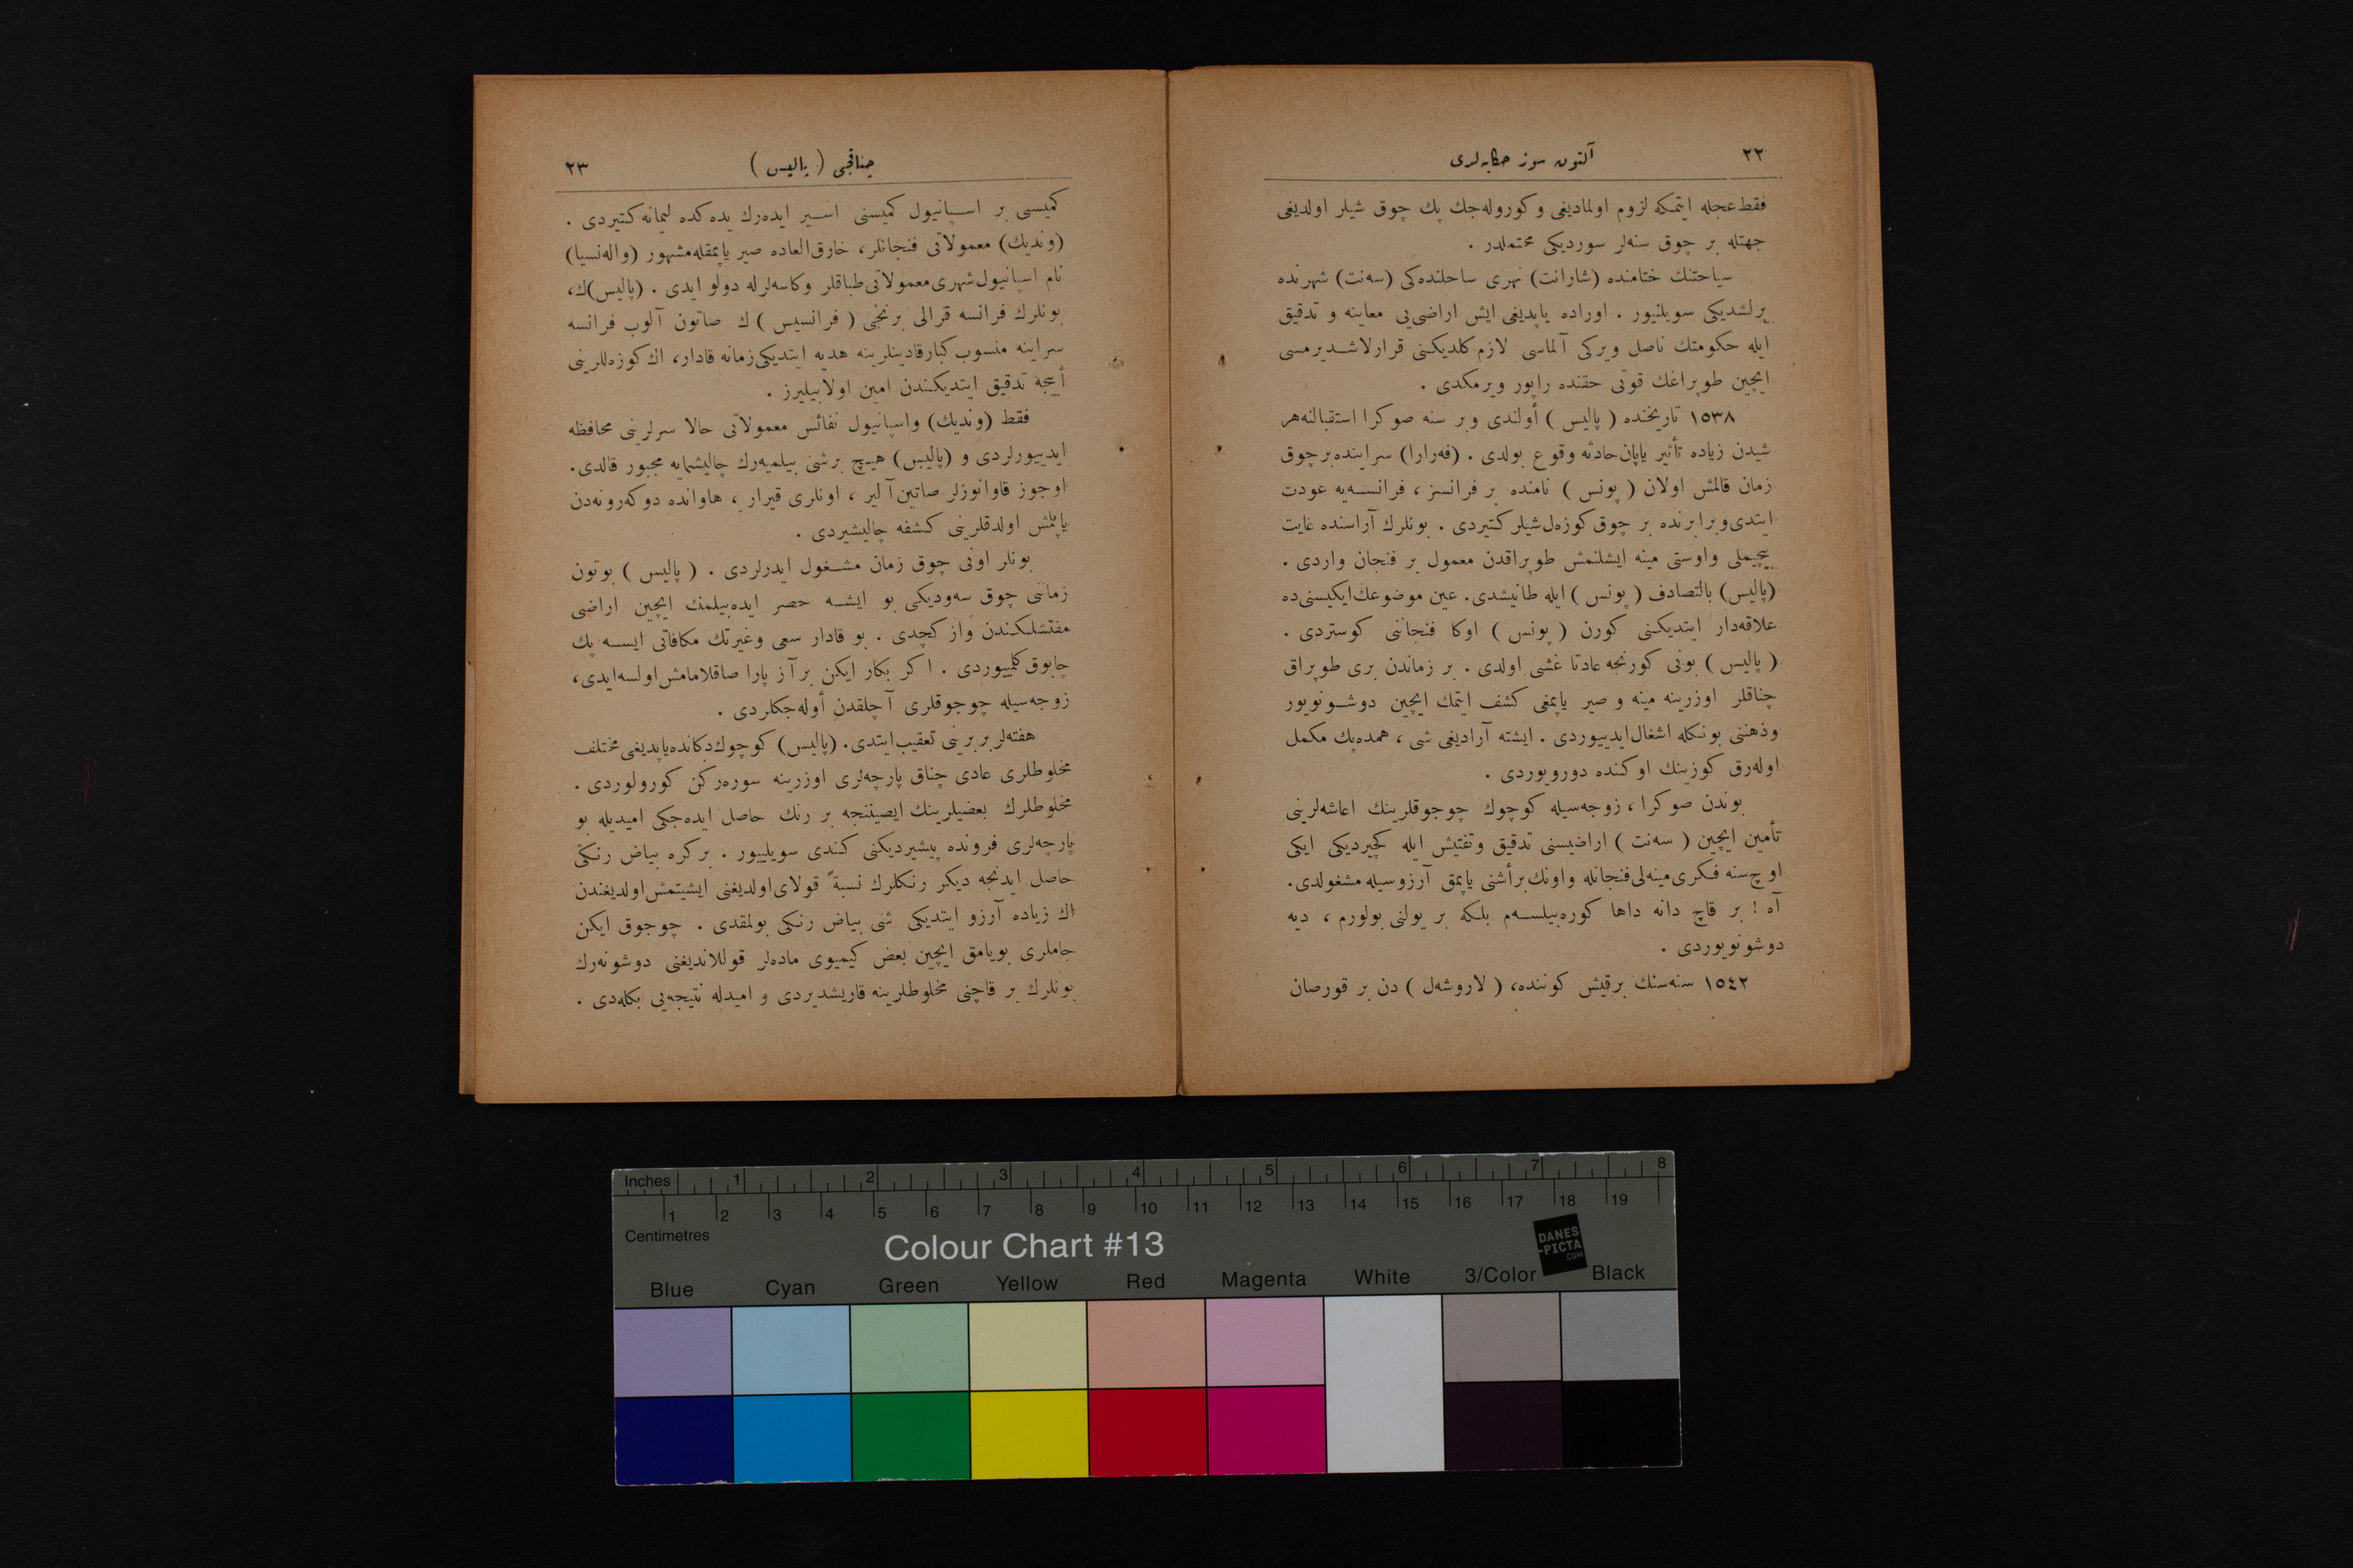 ٢٢
آلتون سوز حكايه‌لرى
فقط عجله ايتمكه لزوم اولماديغى و كوروله‌جك پك چوق شيلر اولديغى
جهتله بر چوق سنه‌لر سورديكى محتملدر .
سياحتنك ختامنده (شارانت) نهرى ساحلنده‌كى (سه‌نت) شهرنده
يرلشديكى سويلنيور . اوراده ياپديغى ايش اراضى‌يى معاينه و تدقيق
ايله حكومتك ناصل ويركى آلماسى لازم كلديكنى قرارلاشديرمسى
ايچين طوپراغك قوتى حقنده راپور ويرمكدى .
١٥٣٨ تاريخنده ( پاليس ) أولندى وبر سنه صوكرا استقبالنه هر
شيدن زياده تأثير ياپان حادثه وقوع بولدى . (فه‌رارا) سراينده بر چوق
زمان قالمش اولان ( پونس ) نامنده بر فرانسز ، فرانسه‌يه عودت
ايتدى و برابرنده بر چوق كوزه‌ل شيلر كتيردى . بونلرك آراسنده غايت
بيچيملى و اوستى مينه ايشلنمش طوپراقدن معمول بر فنجان واردى .
(پاليس) بالتصادف ( پونس ) ايله طانيشدى. عين موضوعك ايكيسنى ده
علاقه‌دار ايتديكنى كورن ( پونس ) اوكا فنجاننى كوستردى .
( پاليس ) بونى كورنجه عادتا غشى اولدى . بر زماندن برى طوپراق
چناقلر اوزرينه مينه و صير ياپمغى كشف ايتمك ايچين دوشونويور
وذهننى بونكله اشغال ايدييوردى . ايشته آراديغى شى ، همده پك مكمل
اوله‌رق كوزينك اوكنده دورويوردى .
بوندن صوكرا ، زوجه‌سيله كوچوك چوجوقلرينك اعاشه‌لرينى
تأمين ايچين ( سه‌نت ) اراضيسنى تدقيق وتفتيش ايله كچيرديكى ايكى
اوچ سنه فكرى مينه‌لى فنجانله واونك بر أشنى ياپمق آرزوسيله مشغولدى.
آه ! بر قاچ دانه داها كوره‌بيلسه‌م بلكه بر يولنى بولورم ، ديه
دوشونويوردى .
١٥٤٢ سنه‌سنك بر قيش كوننده، ( لاروشه‌ل ) دن بر قورصان
چناقجى ( پاليس )
٢٣
كميسى بر اسپانيول كميسنى اسير ايده‌رك يده‌كده ليمانه كتيردى .
(ونديك) معمولاتى فنجانلر، خارق‌العاده صير ياپمقله مشهور (واله‌نسيا)
نام اسپانيول شهرى معمولاتى طباقلر وكاسه‌لرله دولو ايدى . (پاليس)ك،
بونلرك فرانسه قرالى برنجى ( فرانسيس ) ك صاتون آلوب فرانسه
سراينه منسوب كبار قادينلرينه هديه ايتديكى زمانه قادار، اك كوزه‌للرينى
أيجه تدقيق ايتديكندن امين اولابيليرز .
فقط (ونديك) واسپانيول نفائس معمولاتى حالا سرلرينى محافظه
ايدييورلردى و (پاليس) هيچ برشى بيلميه‌رك چاليشمايه مجبور قالدى.
اوجوز قاوانوزلر صاتين آلير ، اونلرى قيرار ، هاوانده دوكه‌ر ونه‌دن
ياپلمش اولدقلرينى كشفه چاليشيردى .
بونلر اونى چوق زمان مشغول ايدرلردى . ( پاليس ) بوتون
زماننى چوق سه‌وديكى بو ايشه حصر ايده‌بيلمك ايچين اراضى
مفتشلكندن واز كچدى . بو قادار سعى وغيرتك مكافاتى ايسه پك
چابوق كلمييوردى . اكر بكار ايكن بر آز پارا صاقلامامش اولسه‌ايدى،
زوجه‌سيله چوجوقلرى آچلقدن أوله‌جكلردى .
هفته‌لر بربرينى تعقيب ايتدى. (پاليس) كوچوك دكانده ياپديغى مختلف
مخلوطلرى عادى چناق پارچه‌لرى اوزرينه سوره‌ركن كورولوردى .
مخلوطلرك بعضيلرينك ايصيننجه بر رنك حاصل ايده‌جكى اميديله بو
پارچه‌لرى فرونده پيشيرديكنى كندى سويلييور . بر كره بياض رنكى
حاصل ايدنجه ديكر رنكلرك نسبةً قولاى اولديغنى ايشيتمش اولديغندن
اك زياده آرزو ايتديكى شى بياض رنكى بولمقدى . چوجوق ايكن
جاملرى بويامق ايچين بعض كيميوى ماده‌لر قوللانديغنى دوشونه‌رك
بونلرك بر قاچنى مخلوطلرينه قاريشديردى و اميدله نتيجه‌يى بكله‌دى .
Inches
1 2 3 4 5 6 7 8
1 2 3 4 5 6 7 8 9 10 11 12 13 14 15 16 17 18 19
Centimetres
Colour Chart #13
DANES
-PICTA
.COM
Blue Cyan Green Yellow Red Magenta White 3/Color Black